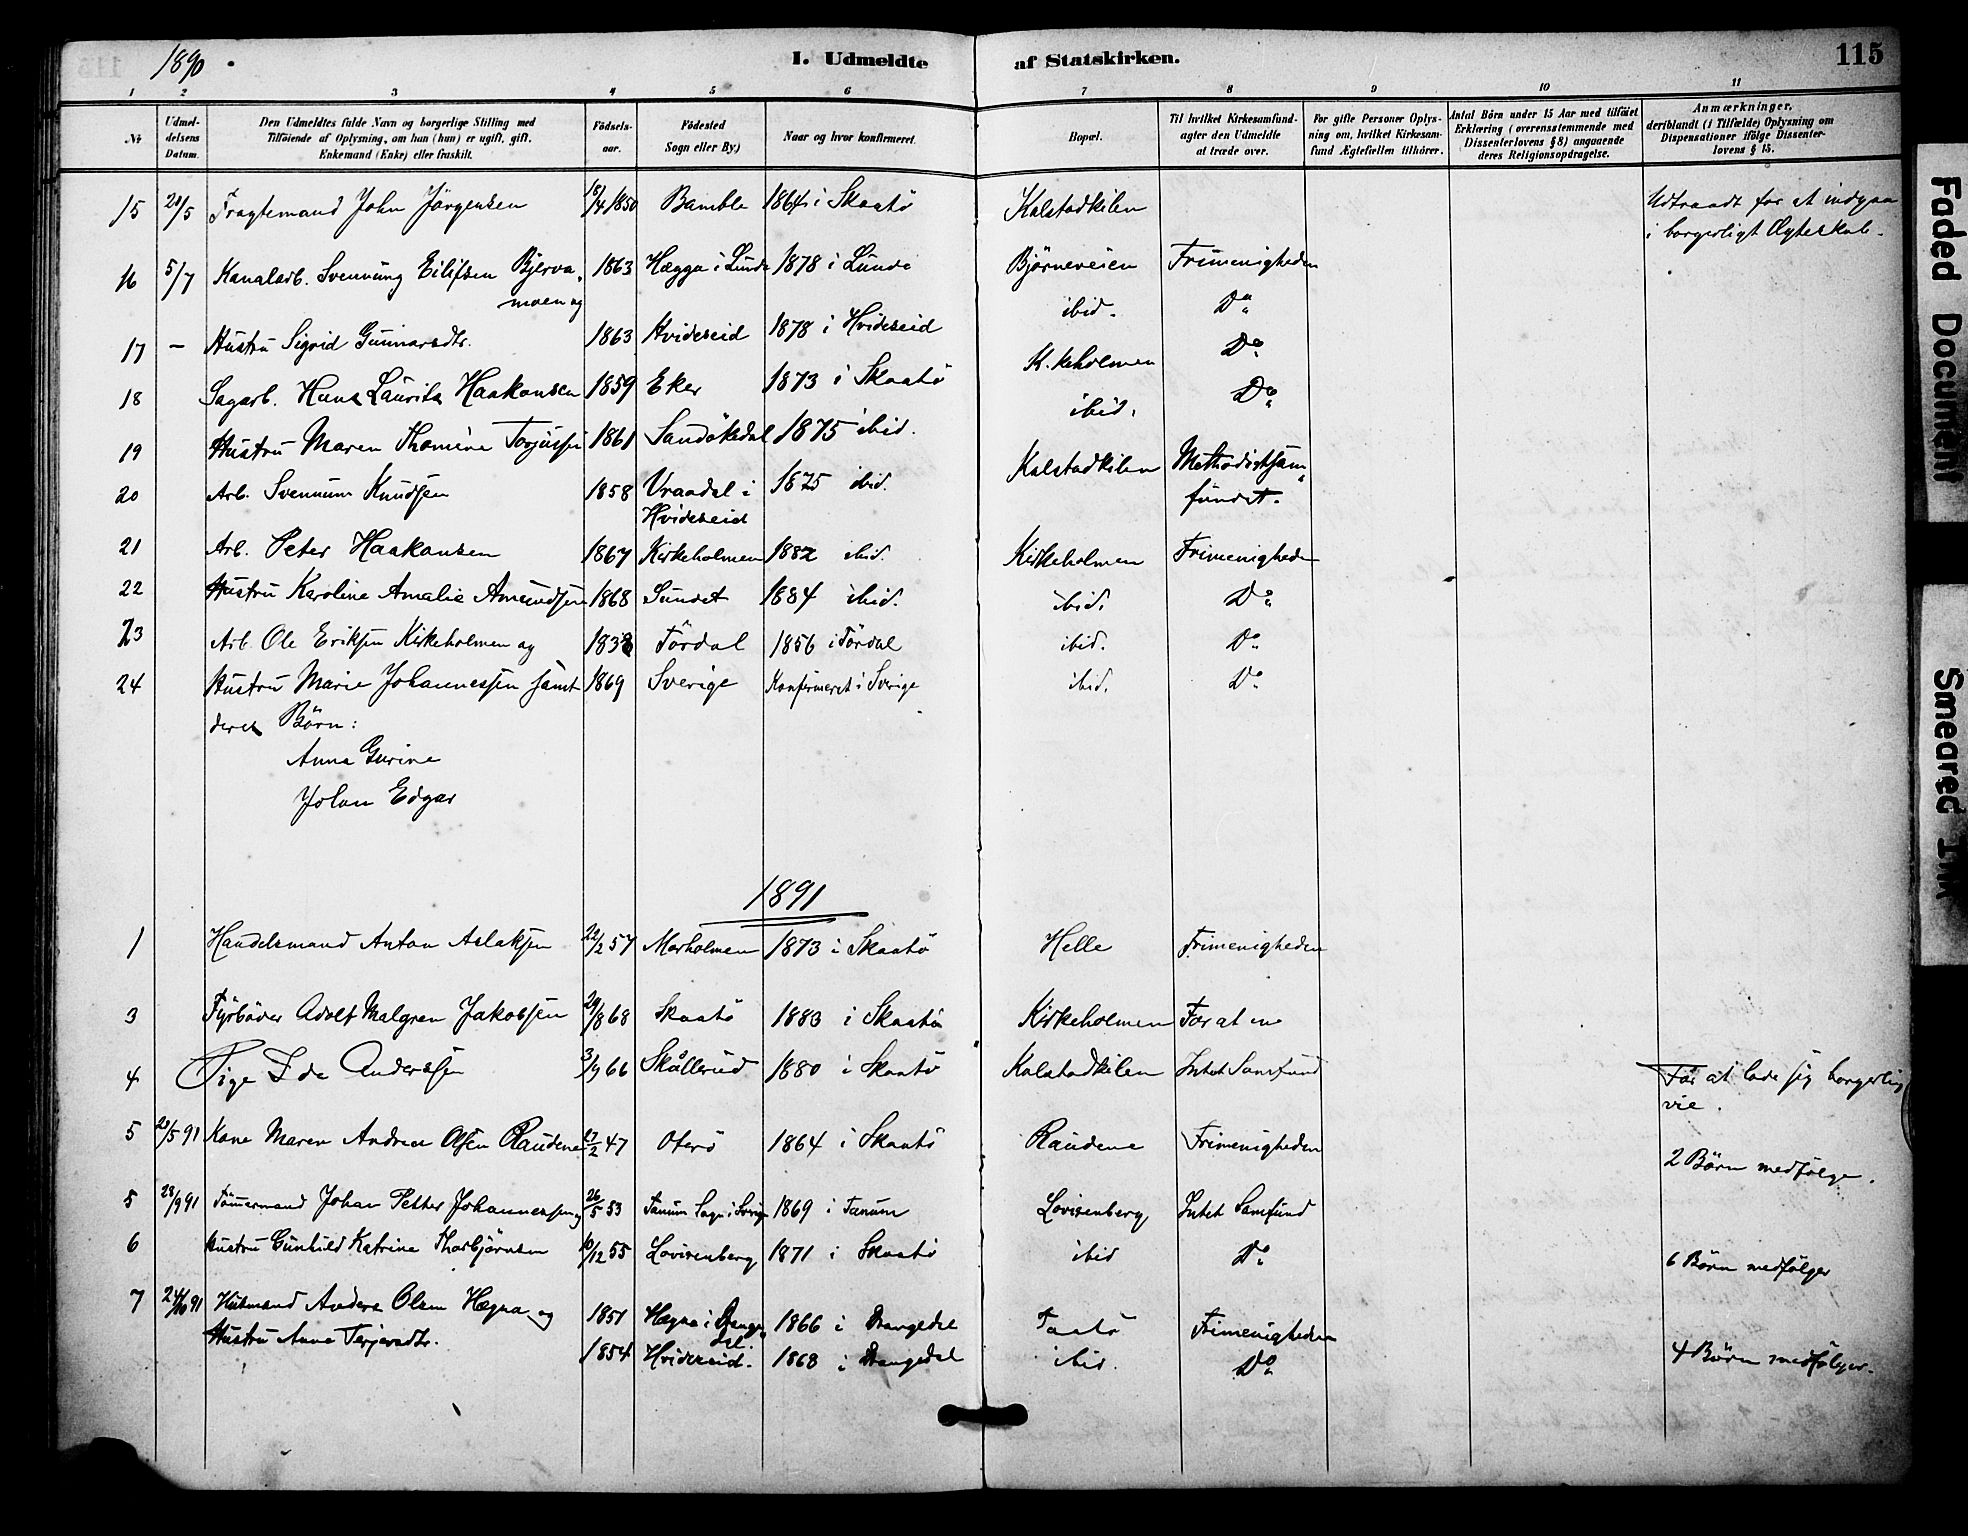 1890
I. Udmeldte af Statskirken.
115
1 2 3 4 5 6 7 8 9 10 11
Nr
Udmel-
delsens
Datum.
Den Udmeldtes fulde Navn og borgerlige Stilling med
Tilføiende af Oplysning, om han (hun) er ugift, gift,
Enkemand (Enke) eller fraskilt.
Fødsels-
aar.
Fødested
Sogn eller By)
Naar og hvor konfirmeret
Bopæl.
Til hvilket Kirkesamfund
agter den Udmeldte
at træde over.
For gifte Personer Oplys-
ning om, hvilket Kirkesam-
fund Ægtefællen tilhører.
Antal Børn under 15 Aar med tilføiet
Erklæring (overensstemmende med
Dissenterlovens § 8) angaaende
deres Religionsopdragelse.
Anmærkninger,
deriblandt (i Tilfælde) Oplysning om
Dispensationer ifølge Dissenter-
lovens § 15.
15 21/5 Fragtemand John Jörgensen 18/4 1850 Bamble 1864 i Skaatö Kalstadkilen Udtraadt for at indgaa
i borgerligt Ægteskab.
16 5/7 Kanalarb. Svennung Eilifsen Bjerva- 1863 Hægga i Lunde 1878 i Lunde Björneveien Frimenigheden
moen og ibid. Do
17 – Hustru Sigrid Gunnarsdtr. 1863 Hvideseid 1878 i Hvideseid K.keholmen Do
18 Sagarb. Hans Laurits Haakonsen 1859 Eker 1873 i Skaatö ibid. Do
19 Hustru Maren Thomine Torjussen 1861 Sandökedal 1875 ibid.
20 Arb. Svennum Knudsen 1858 Vraadal i 1875 ibid. Kalstadkilen Methodistsam-
Hvideseid fundet.
21 Arb. Peter Haakonsen 1867 Kirkeholmen 1882 ibid. Kirkeholmen Frimenigheden
22 Hustru Karoline Amalie Amundsen 1868 Sundet 1884 ibid. ibid. Do
23 Arb. Ole Eriksen Kirkeholmen og 1838 Tördal 1856 i Tördal ibid. Do
24 Hustru Marie Johannessen samt 1869 Sverige Konfirmeret i Sverige ibid. Do
deres Börn:
Anna Gurine
Johan Edgar
1891
1 Handelsmand Anton Aslaksen 22/2 57 Morholmen 1873 i Skaatö Helle Frimenigheden
3 Fyrböder Adolf Malgren Jakobsen 29/8 68 Skaatö 1883 i Skaatö Kirkeholmen
4 Pige Ida Anderssen 3/9 66 Skållerud 1880 i Skaatö Kalstadkilen Intet Samfund For at lade sig borgerlig
vie.
5 20/5 91 Kone Maren Andrea Olsen Raudene 27/2 47 Oterö 1864 i Skaatö Raudene Frimenigheden 2 Börn medfölge.
5 28/9 91 Tömmermand Johan Petter Johannessen og 26/5 53 Tanum Sogn i Sverige 1869 i Tanum Lovisenberg Intet Samfund
6 Hustru Gunhild Katrine Thorbjörnsen 10/12 55 Lovisenberg 1871 i Skaatö ibid Do 6 Börn medfölger
7 24/10 91 Husmand Anders Olsen Hægna og 1851 Hægna i Drange- 1866 i Drangedal Taatö Frimenigheden
dal.
Hustru Anne Terjesdtr. 1854 Hvideseid. 1868 i Drangedal ibid. Do 4 Börn medfölger.
Faded Document
Smeared Ink